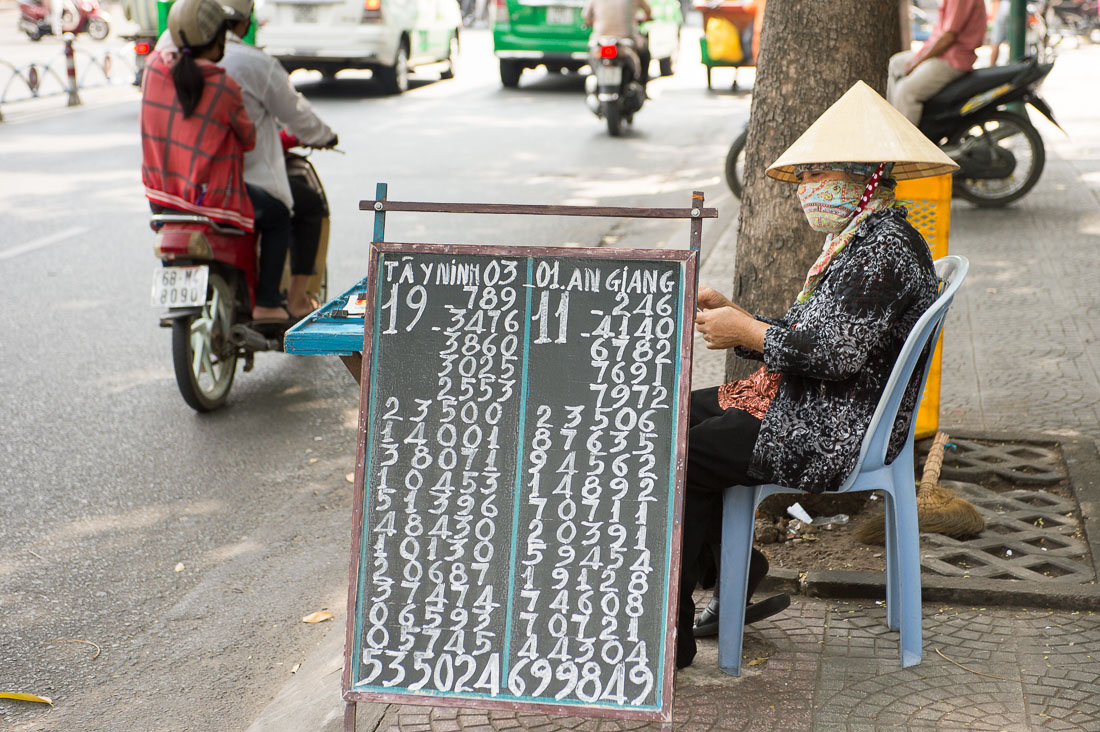 68-M
8090
TÂYNINH 03 - 01. AN GIANG
19 -789 11 -246
-3476 -4140
3860 6782
3025 7691
2553 7972
23500 23506
14001 87635
38071 94562
10453 14892
51396 70711
48430 20391
10130 59454
20687 19128
37474 74608
06593 70721
05745 44304
535024 699849